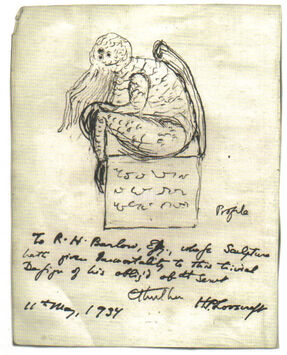 Profile
To R. H. Barlow, Esq., whose Sculpture
hath given Immortality to this trivial
Design of his oblig'd obt Servt
Cthulhu H.P. Lovecraft
11th May, 1934